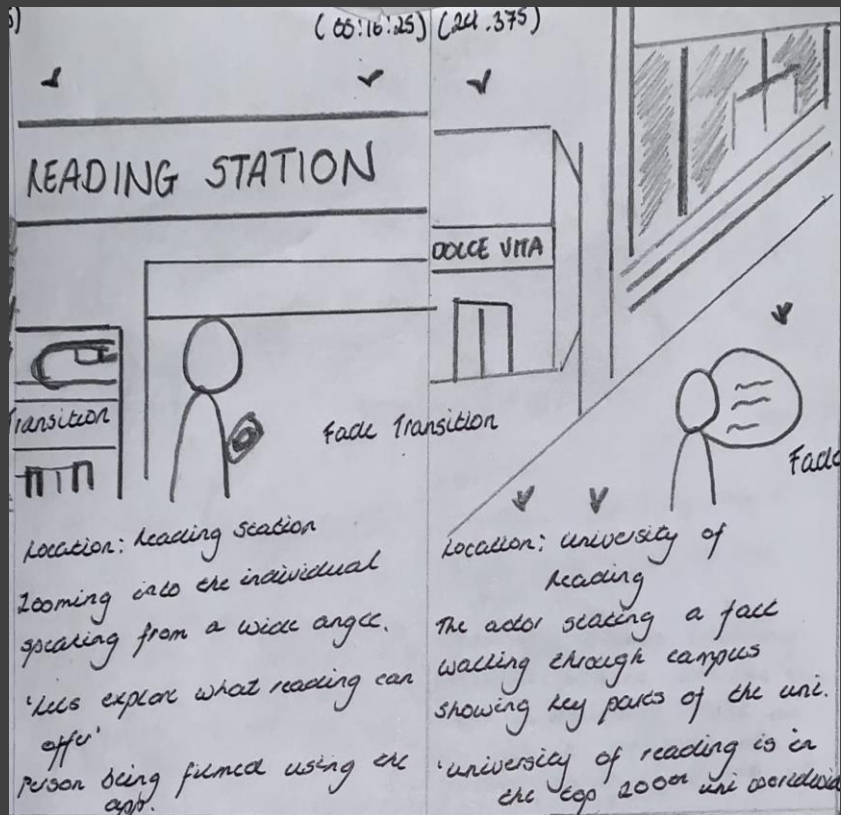 (00:16:25)
READING STATION
Transition
Fade Transition
Location: Reading Station
Zooming into the individual
speaking from a wide angle.
'Lets explore what reading can
offer'
Person being filmed using the
app.
(24.375)
DOLCE VITA
Fade
Location: University of
Reading
The actor stating a fact
walking through campus
showing key parts of the uni.
'university of reading is in
the top 200th uni worldwid